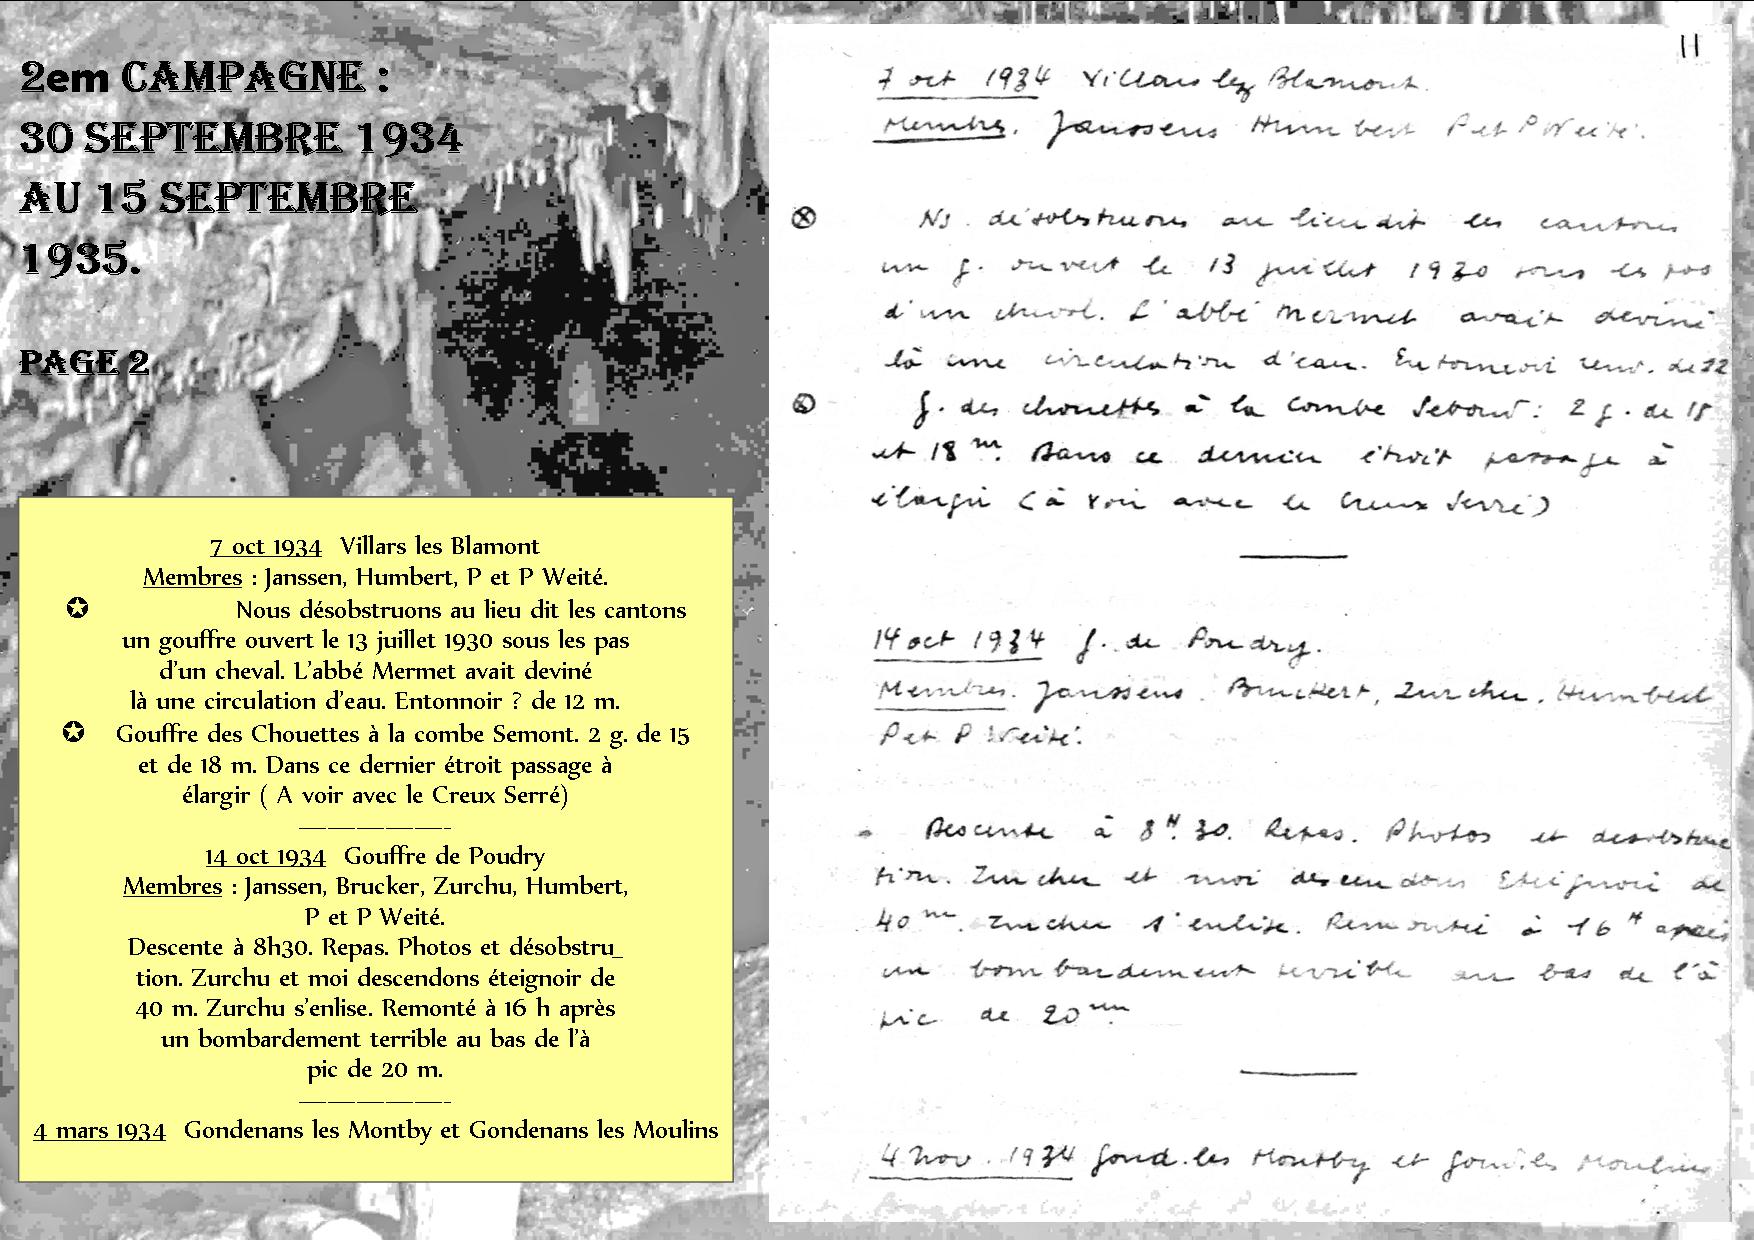 2em CAMPAGNE :
30 SEPTEMBRE 1934
AU 15 SEPTEMBRE
1935.
PAGE 2
7 oct 1934 Villars les Blamont
Membres : Janssen, Humbert, P et P Weité.
✪ Nous désobstruons au lieu dit les cantons
un gouffre ouvert le 13 juillet 1930 sous les pas
d'un cheval. L'abbé Mermet avait deviné
là une circulation d'eau. Entonnoir ? de 12 m.
✪ Gouffre des Chouettes à la combe Semont. 2 g. de 15
et de 18 m. Dans ce dernier étroit passage à
élargir ( A voir avec le Creux Serré)
——————-
14 oct 1934 Gouffre de Poudry
Membres : Janssen, Brucker, Zurchu, Humbert,
P et P Weité.
Descente à 8h30. Repas. Photos et désobstru_
tion. Zurchu et moi descendons éteignoir de
40 m. Zurchu s'enlise. Remonté à 16 h après
un bombardement terrible au bas de l'à
pic de 20 m.
——————-
4 mars 1934 Gondenans les Montby et Gondenans les Moulins
11
7 oct 1934 Villars lez Blamont.
Membres. Janssens Humbert P et P Weité.
Ns. désobstruons au lieu dit les cantons
un g. ouvert le 13 juillet 1930 sous les pas
d'un cheval. L'abbé Mermet avait deviné
là une circulation d'eau. Entonnoir de 12
g. des chouettes à la Combe : 2 g. de 15
et 18m. Dans ce dernier étroit passage à
élargir (à voir avec le Creux Serré)
14 oct 1934 g. de Poudry.
Membres. Janssens. Bruckert, Zurcher, Humbert
P et P Weité.
Descente à 8H30. Repas. Photos et désobstruc
tion. Zurcher et moi descendons Eteignoir de
40m. Zurcher s'enlise. Remontée à 16H après
un bombardement terrible au bas de l'à
pic de 20m
4 Nov. 1934 Gond. les Montby et Gond. les Moulins